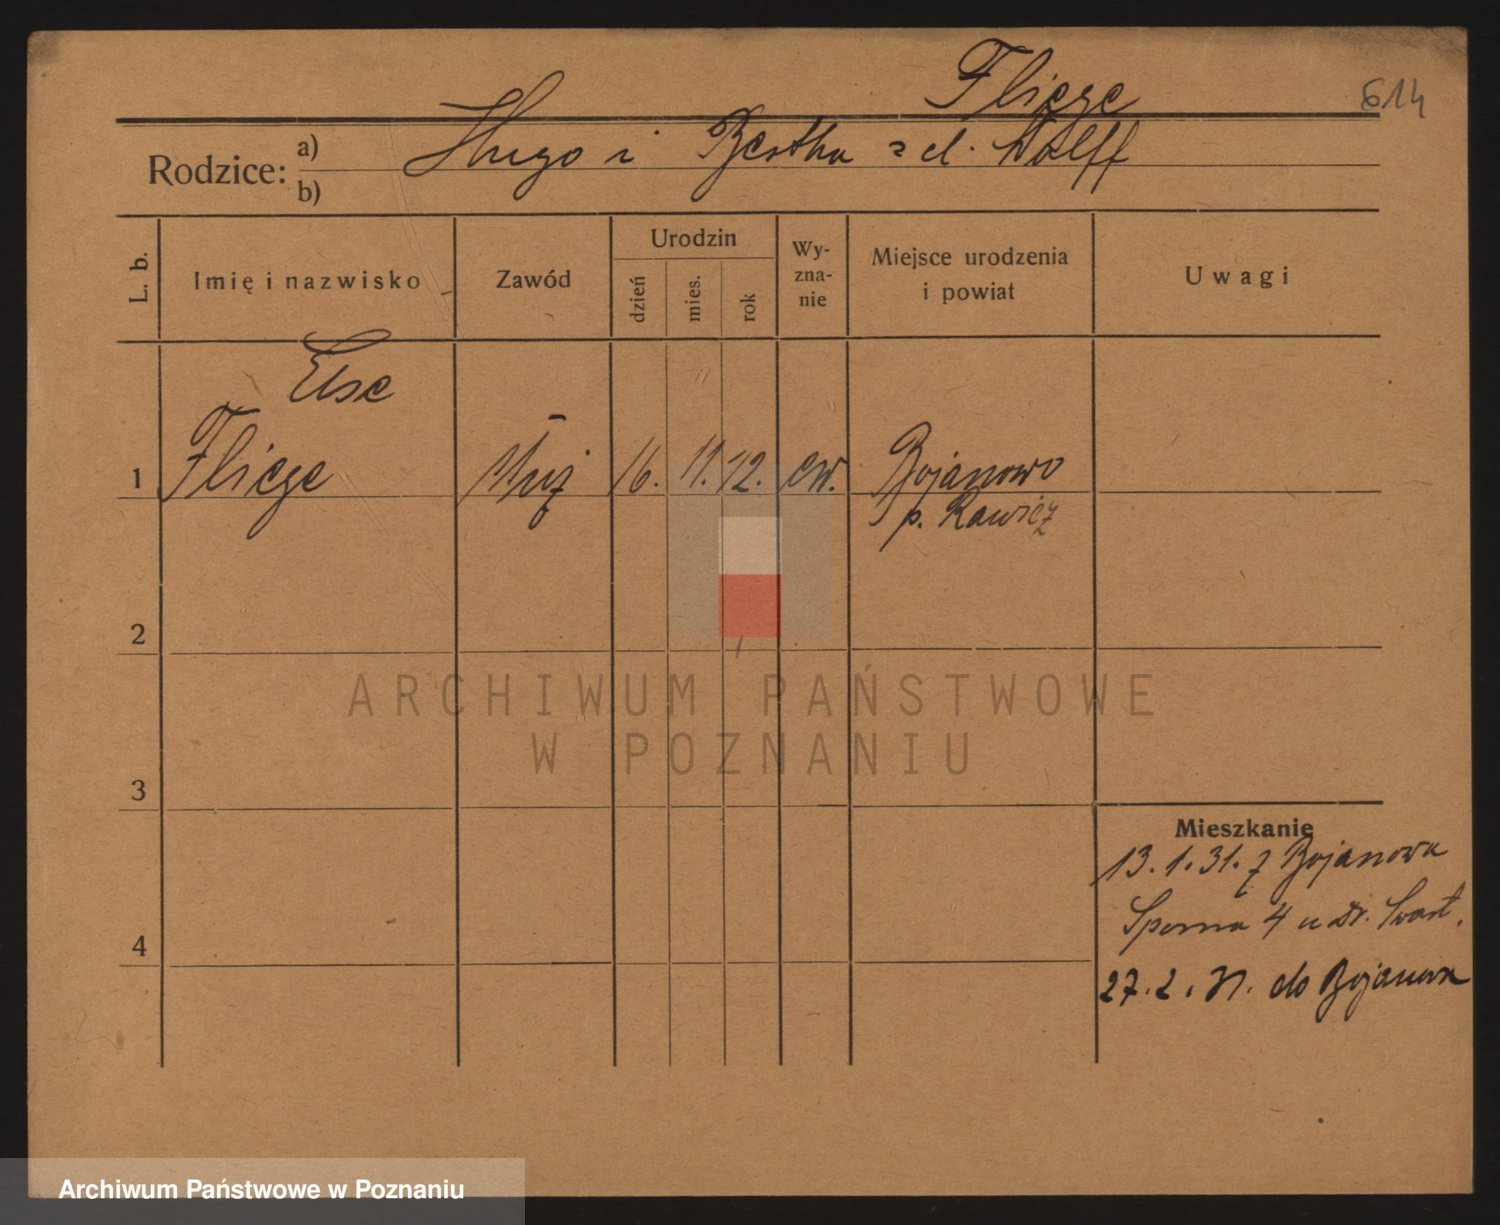 Fliege
614
Rodzice: a) Hugo i Bertha z d. Wolff
b)
L. b.
Imię i nazwisko
Zawód
Urodzin
dzień
mies.
rok
Wy-
zna-
nie
Miejsce urodzenia
i powiat
Uwagi
Else
1 Fliege służ 16. 11. 12. ew. Bojanowo
p. Rawicz
2
3
4
Mieszkanie
13.1.31. z Bojanowa
Sporna 4 u Dr.
27.2.31. do Bojanowa
ARCHIWUM PAŃSTWOWE
W POZNANIU
Archiwum Państwowe w Poznaniu